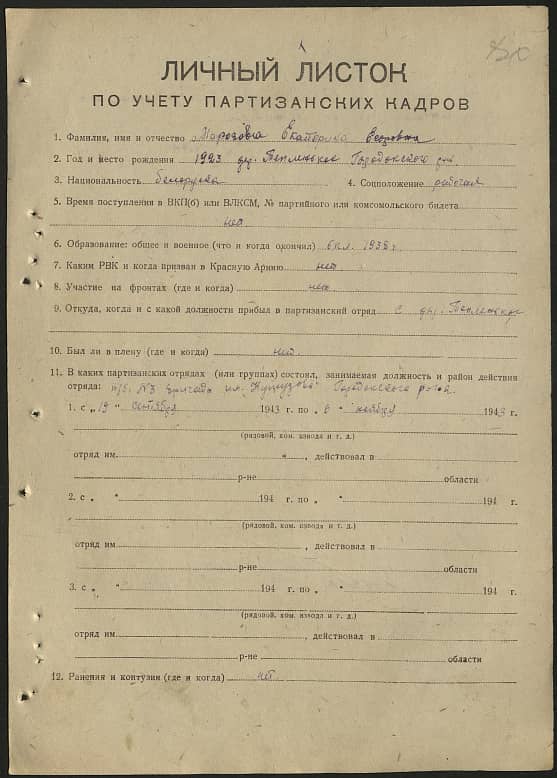 ЛИЧНЫЙ ЛИСТОК
ПО УЧЕТУ ПАРТИЗАНСКИХ КАДРОВ
1. Фамилия, имя и отчество Морозова Екатерина
2. Год и место рождения 1923 дер. Городокского р-н
3. Национальность белоруска 4. Соцположение рабочая
5. Время поступления в ВКП(б) или ВЛКСМ, № партийного или комсомольского билета
нет
6. Образование: общее и военное (что и когда окончил) 6 кл. 1938 г
7. Каким РВК и когда призван в Красную Армию нет
8. Участие на фронтах (где и когда) нет
9. Откуда, когда и с какой должности прибыл в партизанский отряд с дер.
10. Был ли в плену (где и когда) нет.
11. В каких партизанских отрядах (или группах) состоял, занимаемая должность и район действия
отряда: п/о. №3 бригада им. Кутузова Городокского р-на
1. с „19" сентября 1943 г. по „ 6 " ноября 1943 г.
(рядовой, ком. взвода и т. д.)
отряд им. " , действовал в
р-не области
2. с „ " 194 г. по „ " 194 г.
(рядовой, ком. взвода и т. д.)
отряд им. , действовал в
р-не области
3. с „ " 194 г. по „ " 194 г.
(рядовой, ком. взвода и т. д.)
отряд им. , действовал в
р-не области
12. Ранения и контузии (где и когда) нет